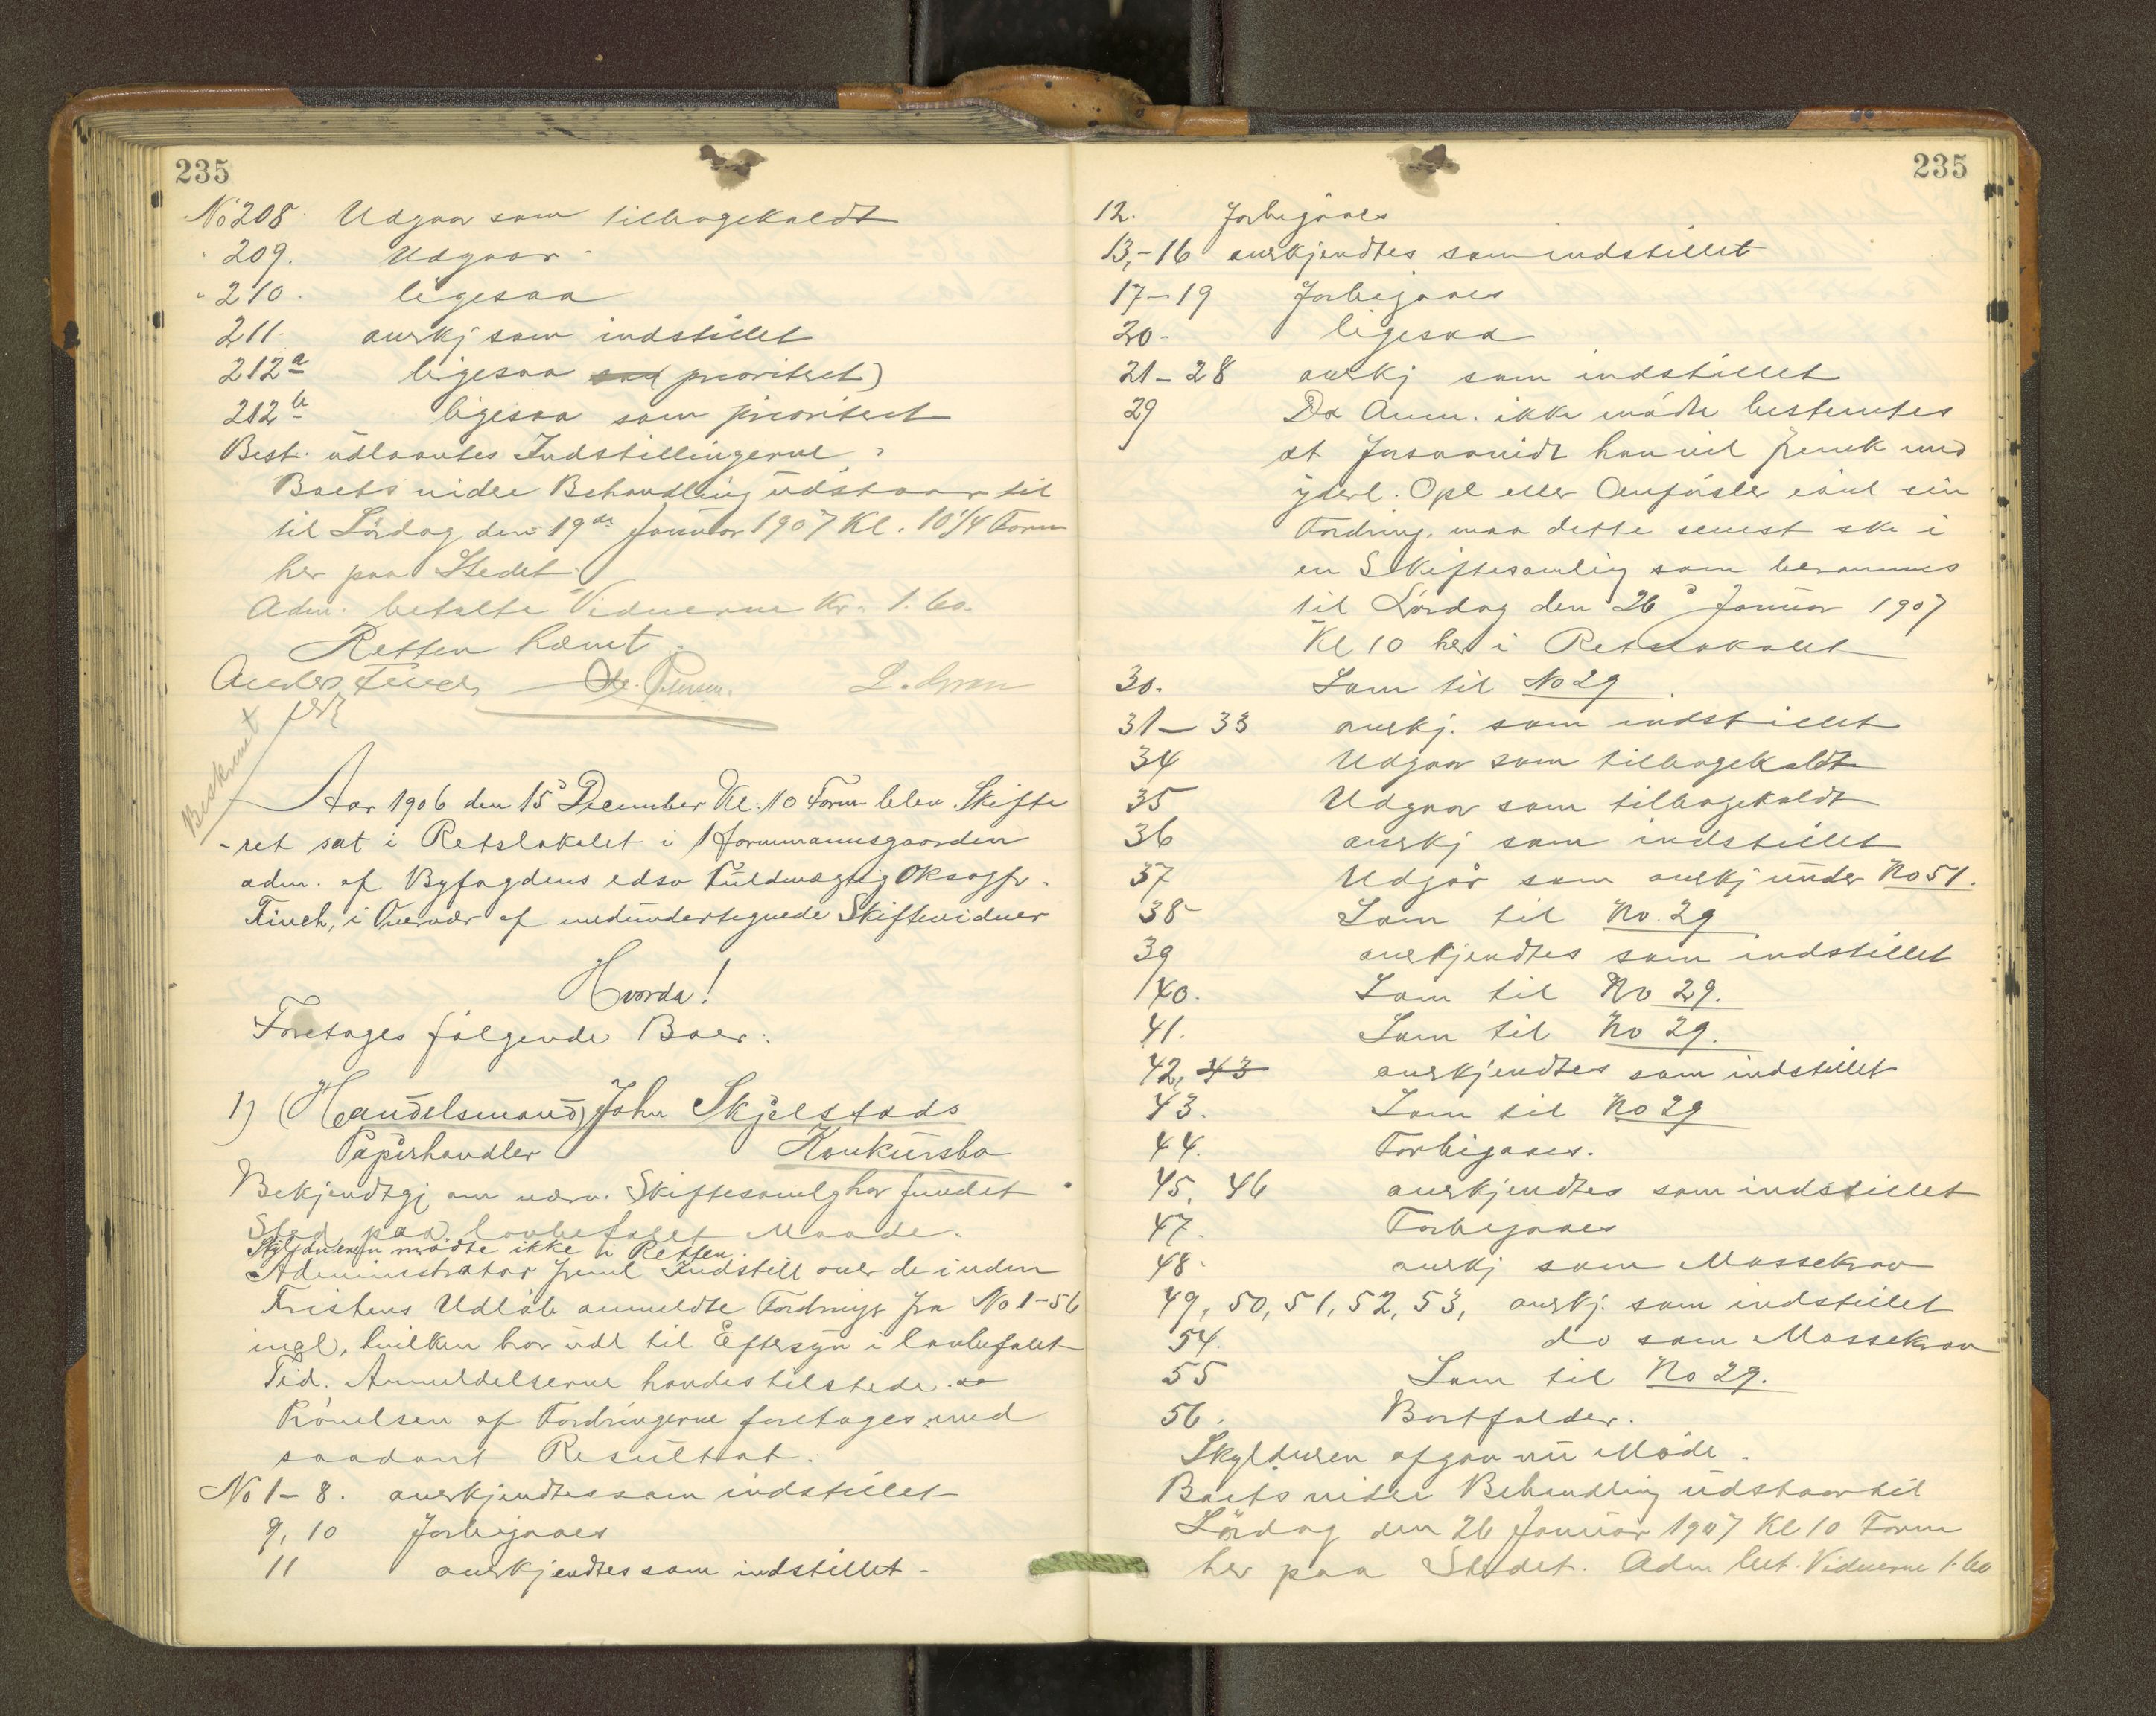 235
No 208. Udgaar som tilbagekaldt
" 209. Udgaar -
" 210. ligesaa
211. anerkj som indstillet
212a ligesaa som prioritret)
212b ligesaa som prioriteret
Best. udlaantes Indstillingerne
Boets videre Behandling udstaar til
til Lördag den 19de Januar 1907 Kl. 10 1/4 Form
her paa Stedet.
Adm. betalte Vidnerne Kr. 1.60.
Retten hævet.
Anders Finch Petersen. L. Gran
Beskrevet
Aar 1906 den 15' December Kl. 10 Form blev Skifte
-ret sat i Retslokalet i Formmannsgaarden
adm. af Byfogdens edsv Fuldmægtig Oksagfr.
Finch, i Overvær af medundertegnede Skiftevidner
Hvorda!
Foretages fölgende Boer:
1) (Handelsmand) John Skjelstads
Papirhandler Konkursbo
Bekjendtgj om nærv. Skiftesamlg har fundet
Sted paa lovbefalet Maade.
Skyldneren mödte ikke i Retten.
Administrator freml Indstill over de inden
Fristens Udlöb anmeldte Fordringr fra No 1-56
incl, hvilken har udl til Eftersyn i lovbefalet
Tid. Anmeldelserne havdes tilstede.
Prövelsen af Fordringerne foretages med
saadant Resultat:
No 1-8. anerkjendtes som indstillet
9, 10 forbigaaes
11 anerkjendtes som indstillet -
235
12. forbigaaes
13,-16 anerkjendtes som indstillet
17-19 forbigaaes
20- ligesaa
21-28 anerkj som indstillet
29 Da Anm. ikke mödte bestemtes
at forsaavidt han vil fremk med
yderl. Opl eller Anförsler eanl sin
Fordring, maa dette senest ske i
en Skiftesamling som berammes
til Lördag den 26' Januar 1907
Kl 10 her i Retslokalet
30. Som til No 29.
31-33 anerkj. som indstillet
34 Udgaar som tilbagekaldt
35 Udgaar som tilbagekaldt
36 anerkj som indstillet
37 Udgår som anerkj under No 51.
38- Som til No. 29
39 anerkjendtes som indstillet
40. Som til No 29.
41. Som til No 29.
42, 43 anerkjendtes som indstillet
43. Som til No 29
44. Forbigaaes.
45, 46 anerkjendtes som indstillet
47. Forbigaaes
48. anerkj som Massekrav
49, 50, 51, 52, 53, anerkj. som indstillet
54. do som Massekrav
55 Som til No 29.
56. Bortfalder.
Skyldneren afgav nu Möde.
Boets videre Behandling udstaar til
Lördag den 26 Januar 1907 Kl 10 Form
her paa Stedet. Adm bet. Vidnerne 1.60